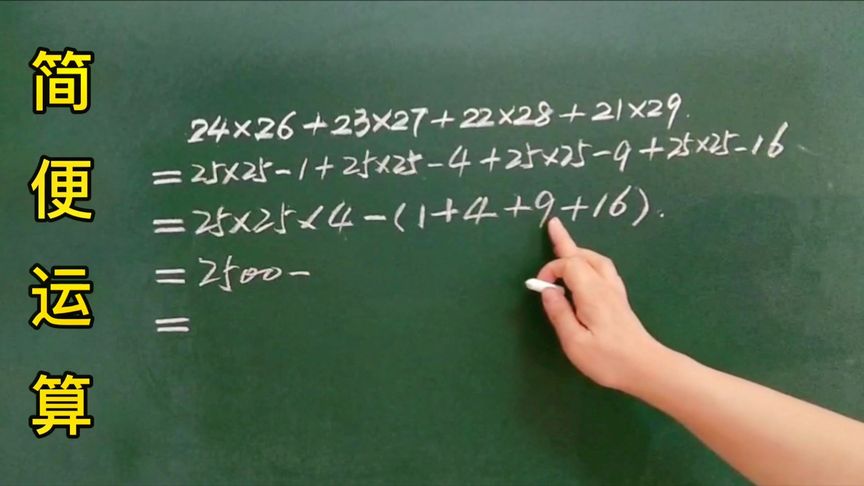 简便运算
24×26+23×27+22×28+21×29.
=25×25-1+25×25-4+25×25-9+25×25-16
=25×25×4-(1+4+9+16).
=2500-
=